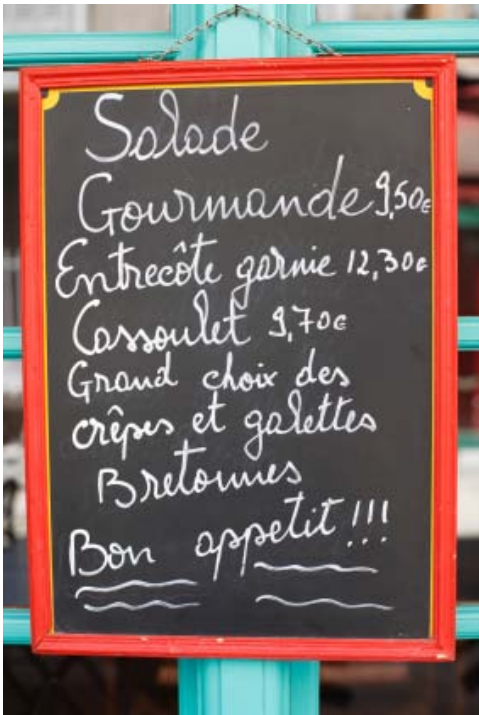 Salade
Gourmande 9,50€
Entrecôte garnie 12,30€
Cassoulet 9,70€
Grand choix des
crêpes et galettes
Bretonnes
Bon appetit !!!